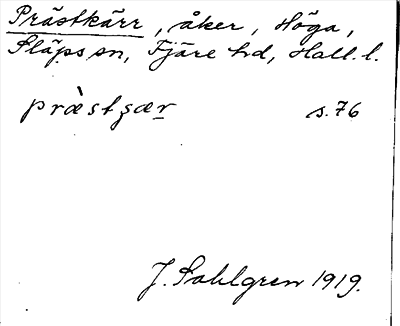 Prästkärr, åker, Höga,
Släps sn, Fjäre hd, Hall. l.
præ̀stʒær s. 76
J. Sahlgren 1919.